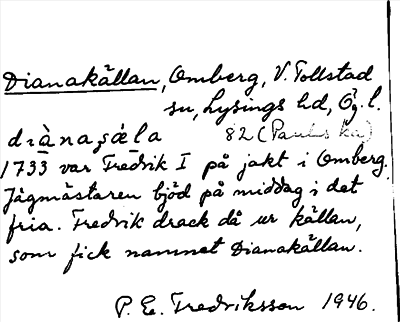 Dianakällan, Omberg, V. Tollstad
sn, Lysings hd, Ög. l.
82 (Paulis ka)
1733 var Fredrik I på jakt i Omberg.
Jägmästaren bjöd på middag i det
fria. Fredrik drack då ur källan,
som fick namnet Dianakällan.
P. E. Fredriksson 1946.